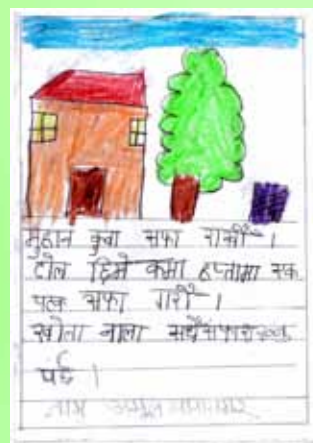 मुहान कुवा सफा राखौँ ।
टोल छिमेकमा हप्तामा एक
पटक सफा गरौँ ।
खोला नाला सधैँ सफा राख्नु
पर्छ ।
नाम